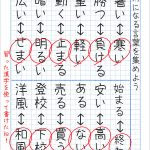 になる言葉を集めよう
暑い↔寒い
始まる↔終わ
勝つ↔負ける
安い↔高い
重い↔軽い
ある↔ない
動く↔止まる
売る↔買う
暗い↔明るい
登校↔下校
広い↔せまい
洋風↔和風
習った漢字を使って書けたね!